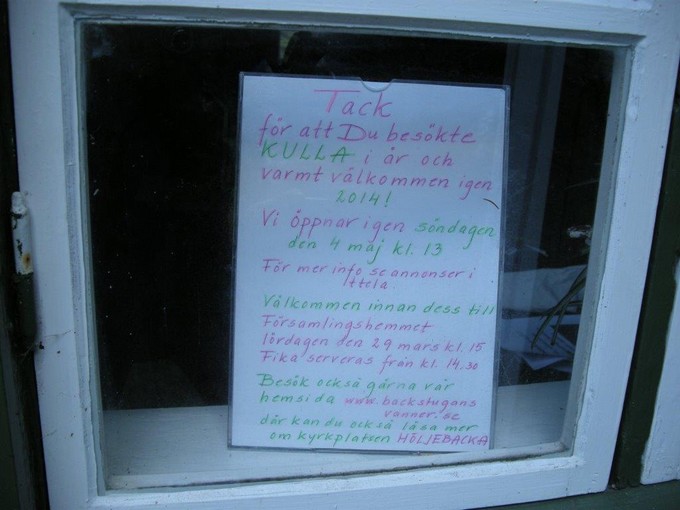 Tack
för att Du besökte
KULLA i år och
varmt välkommen igen
2014!
Vi öppnar igen söndagen
den 4 maj kl. 13
För mer info se annonser i
ttela
Välkommen innan dess till
Församlingshemmet
lördagen den 29 mars kl. 15
Fika serveras från kl. 14.30
Besök också gärna vår
hemsida www.backstugans
vanner.se
där kan du också läsa mer
om kyrkplatsen HÖLJEBACKA